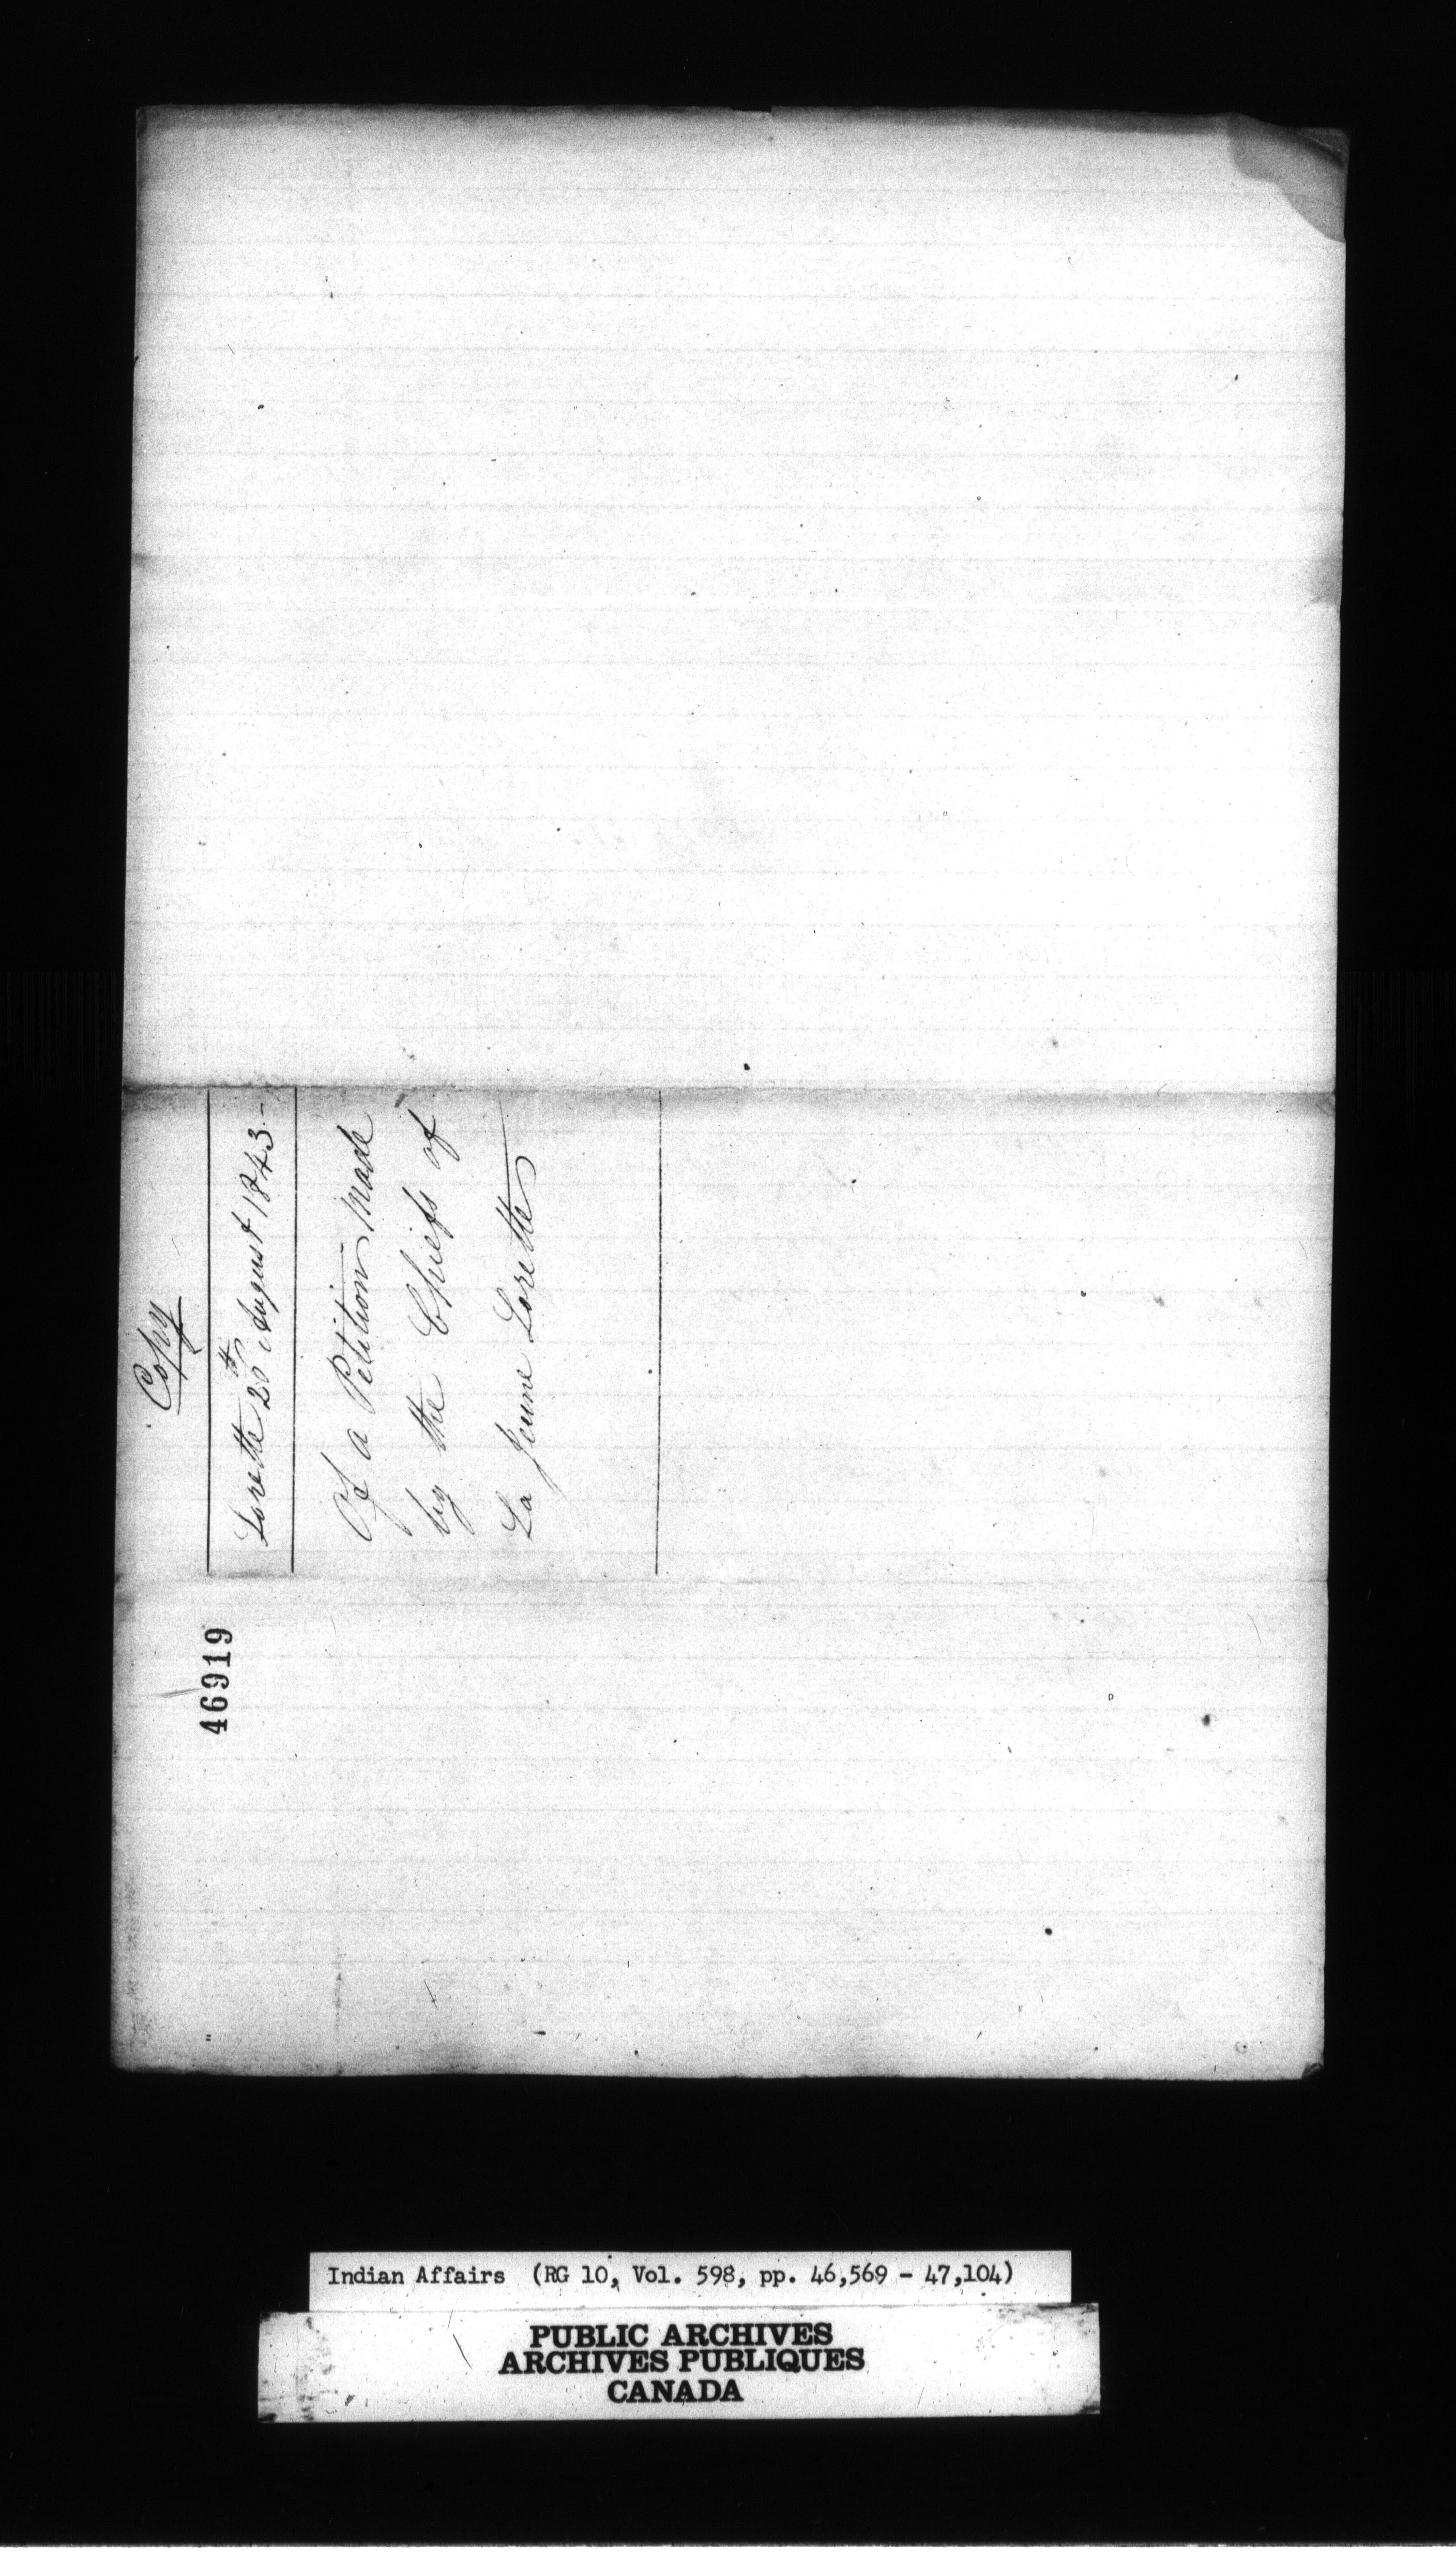 Copy
Lorette 26th August 1843.-
Of a Petition made
by the Chiefs of
La Jeune Lorette
46919
Indian Affairs (RG 10, Vol. 598, pp. 46,569 - 47,104)
PUBLIC ARCHIVES
ARCHIVES PUBLIQUES
CANADA